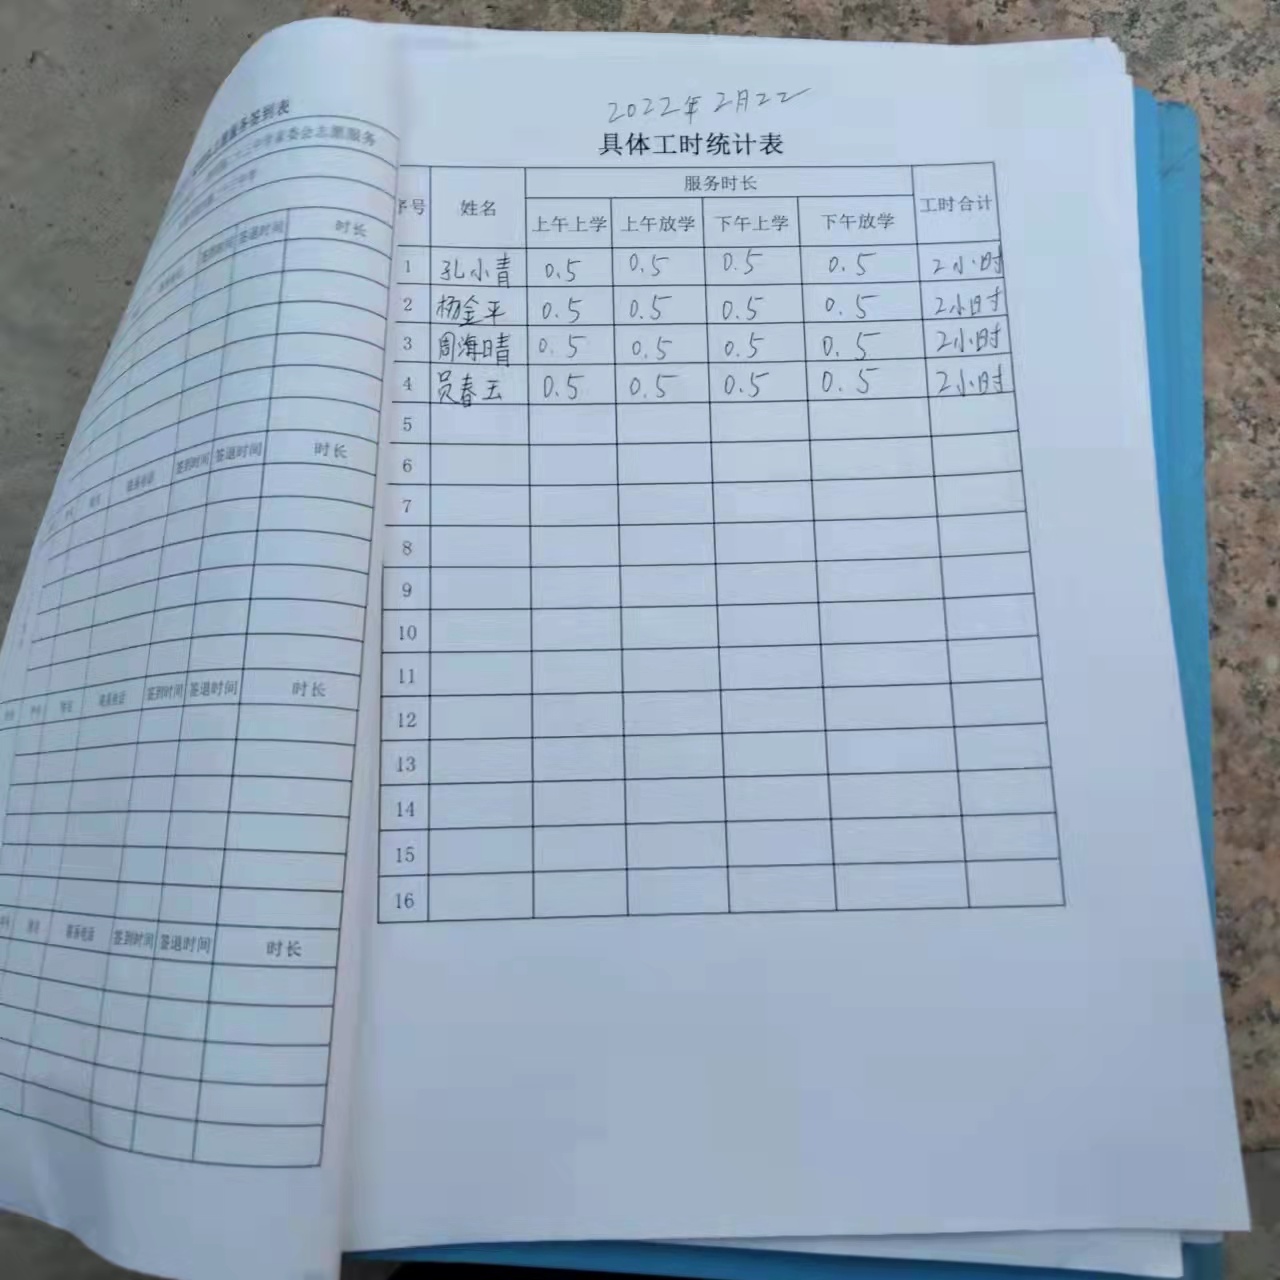 服务签到表
中学家委会志愿服务
签到时间 签退时间 时长
签到时间 签退时间 时长
签到时间 签退时间 时长
签到时间 签退时间 时长
2022年2月22
具体工时统计表
序号 姓名 服务时长 工时合计
上午上学 上午放学 下午上学 下午放学
1 孔小青 0.5 0.5 0.5 0.5 2小时
2 杨金平 0.5 0.5 0.5 0.5 2小时
3 周海晴 0.5 0.5 0.5 0.5 2小时
4 员春玉 0.5 0.5 0.5 0.5 2小时
5
6
7
8
9
10
11
12
13
14
15
16